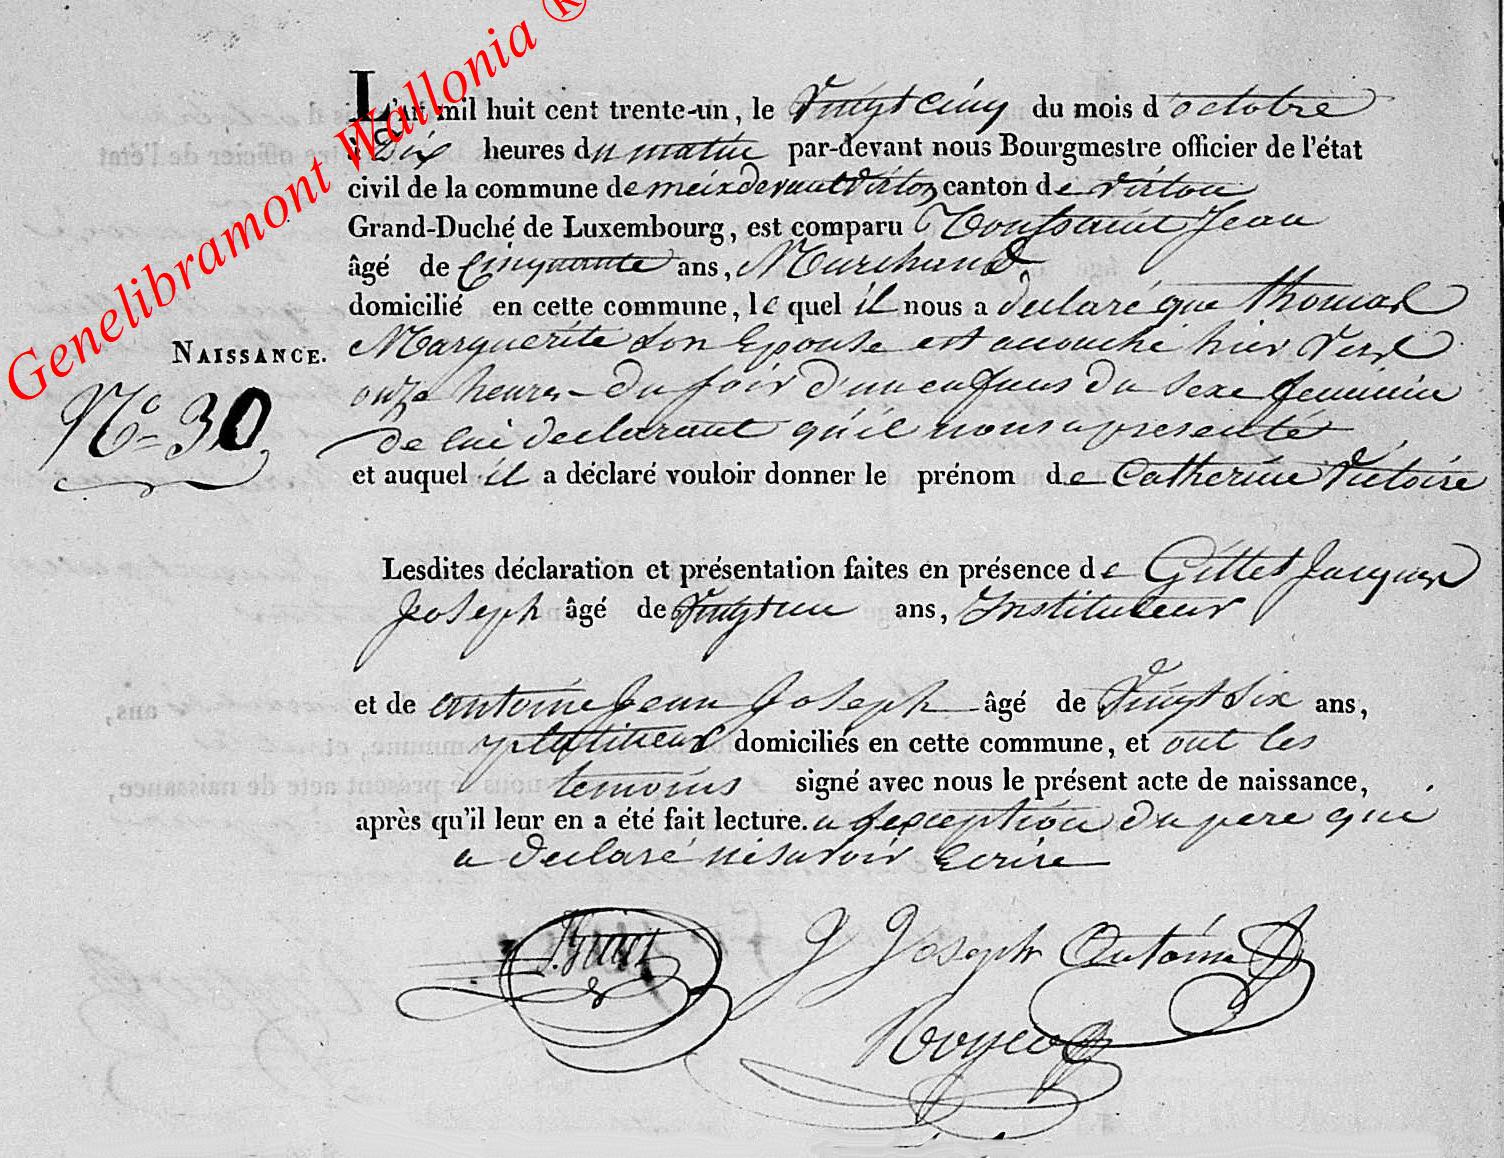 Genelibramont Wallonia ®
L'an mil huit cent trente-un, le Vingt cinq du mois d'octobre
à Dix heures du matin par-devant nous Bourgmestre officier de l'état
civil de la commune de meixdevantvirton canton de virton
Grand-Duché de Luxembourg, est comparu Toussaint Jean
âgé de Cinquante ans, Marchand
domicilié en cette commune, le quel il nous a declaré que thomas
NAISSANCE.
N° 30
Marguerite son Epouse est acouché hier vers
onze heures du soir d'un enfans du sexe feminin
De lui declarant qu'il nous a presenté
et auquel il a déclaré vouloir donner le prénom de Catherine Victoire
Lesdites déclaration et présentation faites en présence de Gillet Jacques
Joseph âgé de Vingt un ans, Instituteur
et de antoine Jean Joseph âgé de Vingt six ans,
domiciliés en cette commune, et ont les
temoins signé avec nous le présent acte de naissance,
après qu'il leur en a été fait lecture. a l'exception du pere qui
a declaré ne savoir Ecrire
J Joseph Antoine